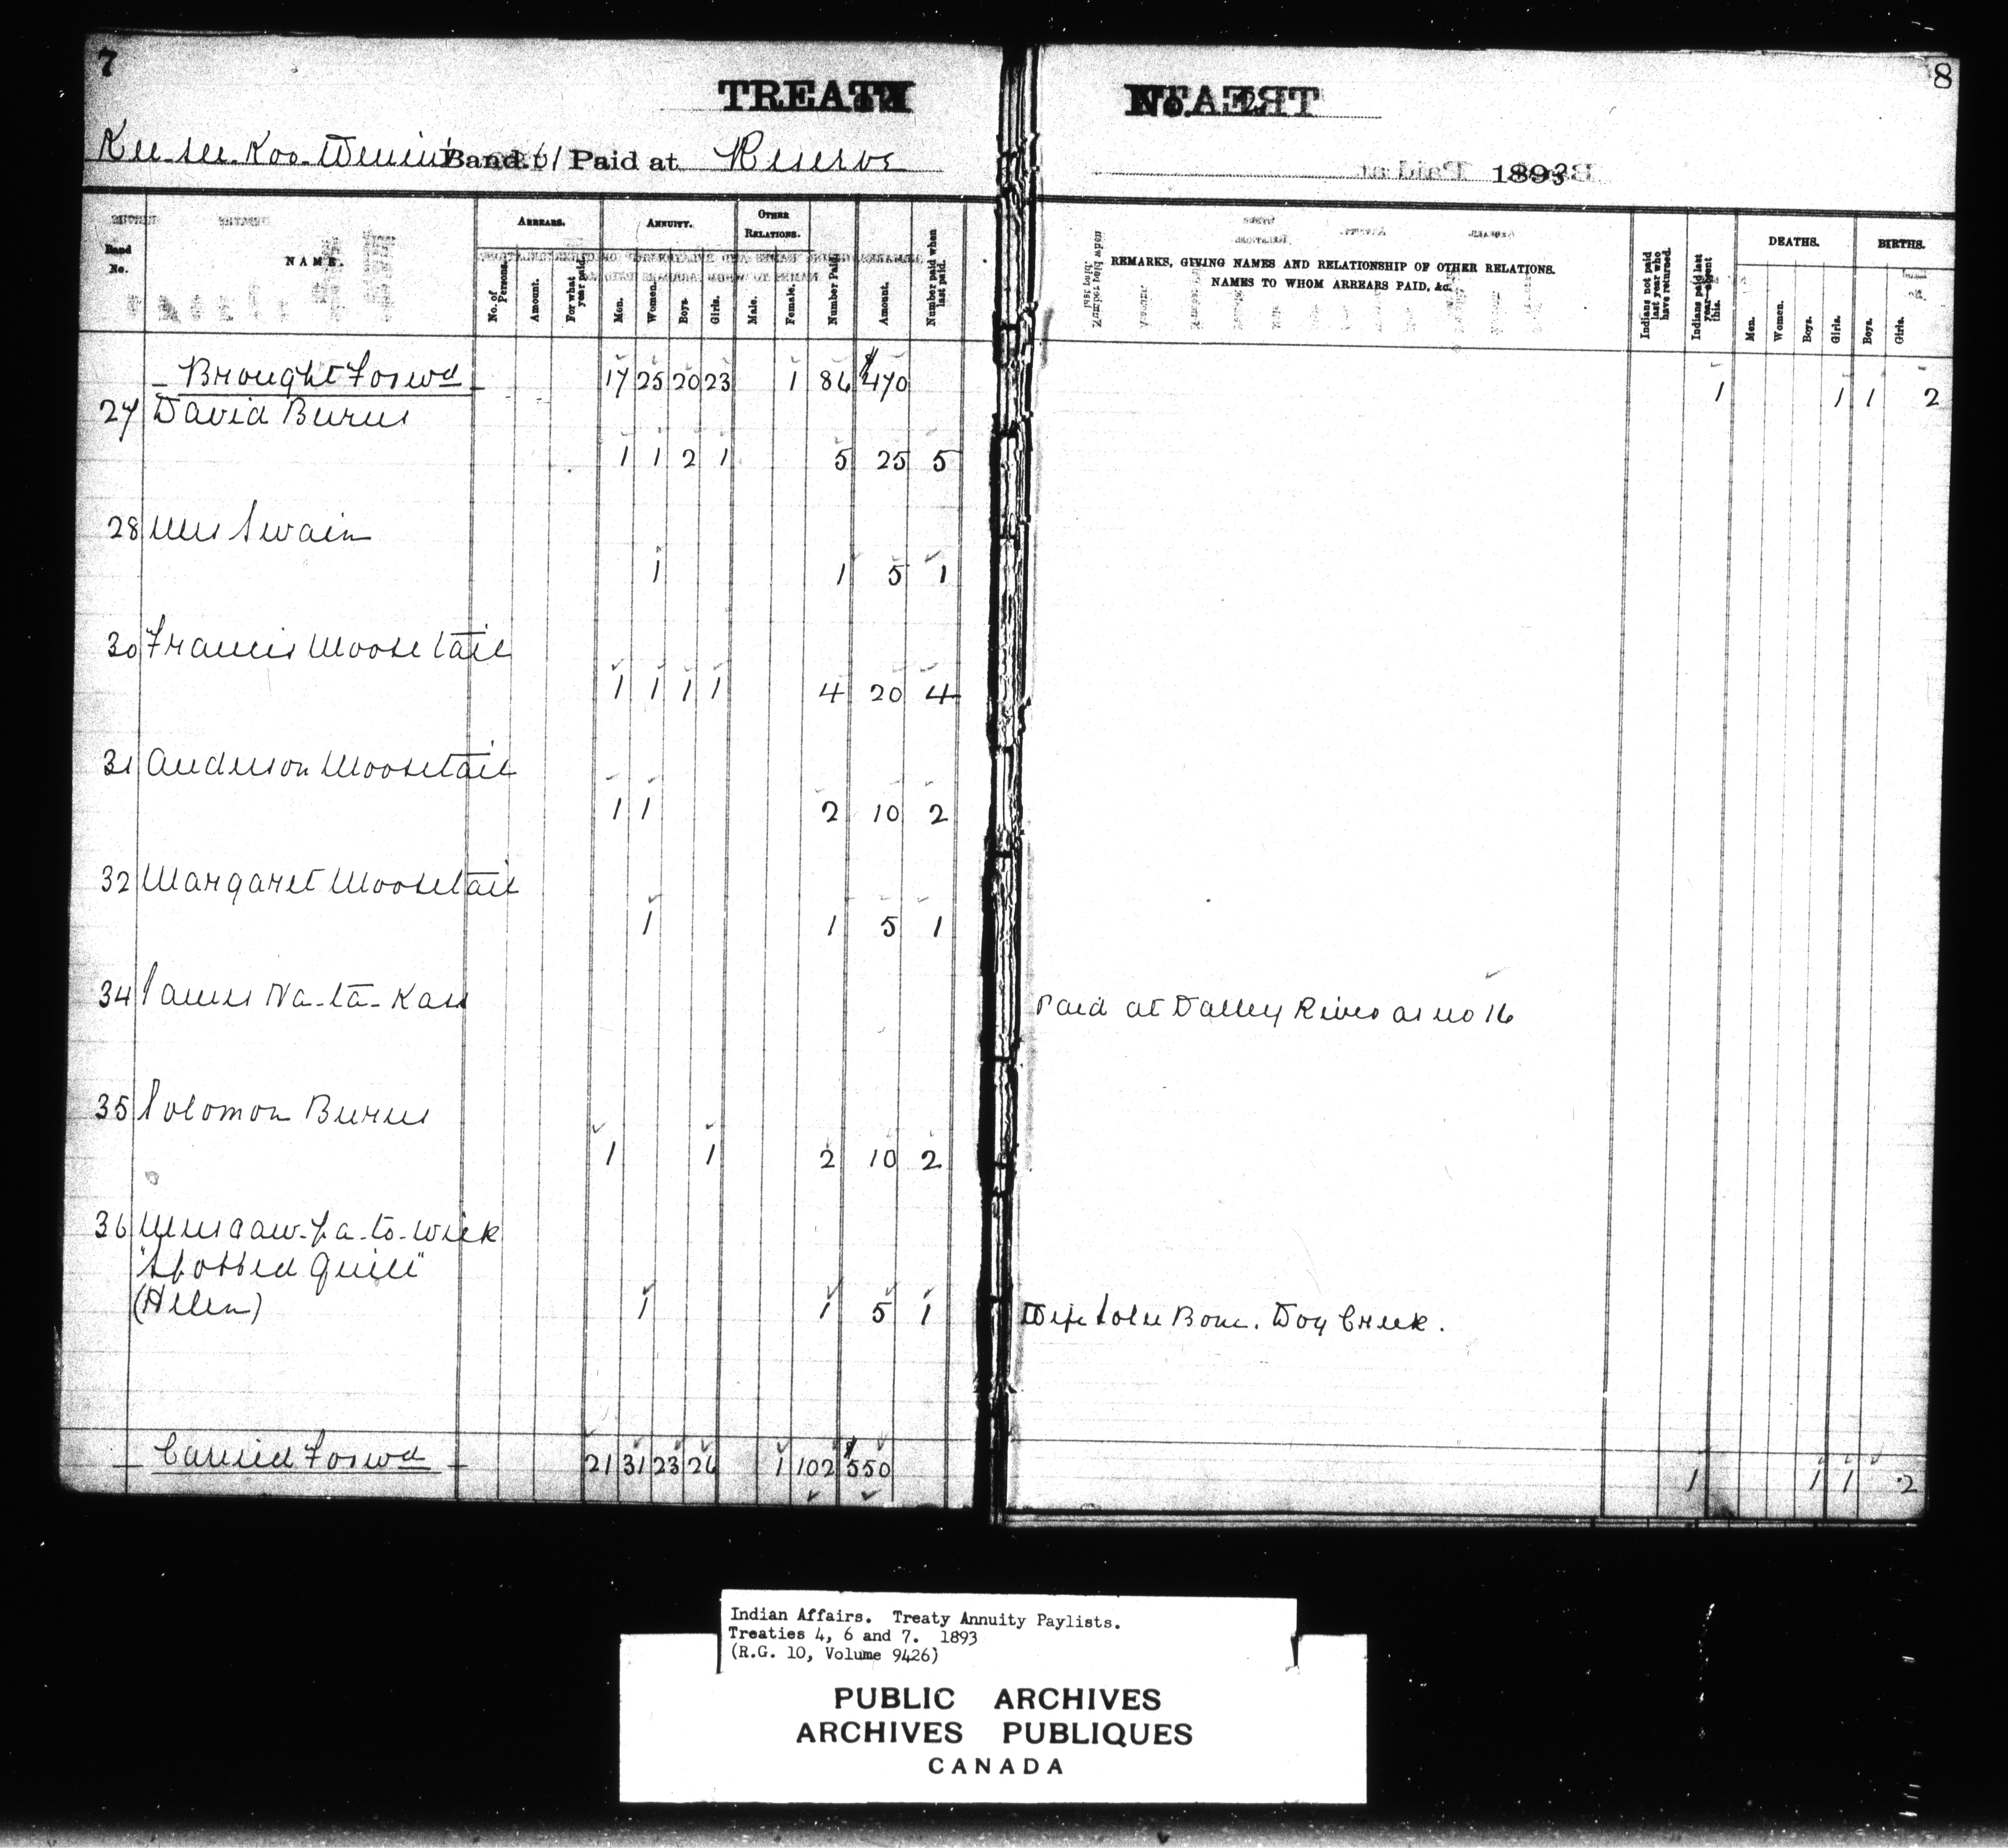 7
8
TREATY
No. 2
Kee-see-Koo-Wenin's Band. 61 Paid at Reserve
1893
Band No.
NAME.
ARREARS.
No. of Persons.
Amount.
For what year paid.
ANNUITY.
Men.
Women.
Boys.
Girls.
OTHER RELATIONS.
Male.
Female.
Number Paid.
Amount.
Number paid when last paid.
REMARKS, GIVING NAMES AND RELATIONSHIP OF OTHER RELATIONS.
NAMES TO WHOM ARREARS PAID, &c.
Indians not paid last year who have returned.
Indians paid last year absent this.
DEATHS.
Men.
Women.
Boys.
Girls.
BIRTHS.
Boys.
Girls.
Brought Forwd 17 25 20 23 1 86 $470 1 1 1 2
27 David Burns
1 1 2 1 5 25 5
28 Mrs Swain
1 1 5 1
30 Francis Moosetail
1 1 1 1 4 20 4
31 Anderson Moosetail
1 1 2 10 2
32 Margaret Moosetail
1 1 5 1
34 James Na-ta-Kass Paid at Valley River as no 16
35 Solomon Burns
1 1 2 10 2
36 Mus caw-pa-to-wick
"Spotted Quill"
(Helen) 1 1 5 1 Wife Sole Bone. Dog Creek.
Carried Forwd 21 31 23 26 1 102 $550 1 1 1 2
Indian Affairs. Treaty Annuity Paylists.
Treaties 4, 6 and 7. 1893
(R.G. 10, Volume 9426)
PUBLIC ARCHIVES
ARCHIVES PUBLIQUES
CANADA